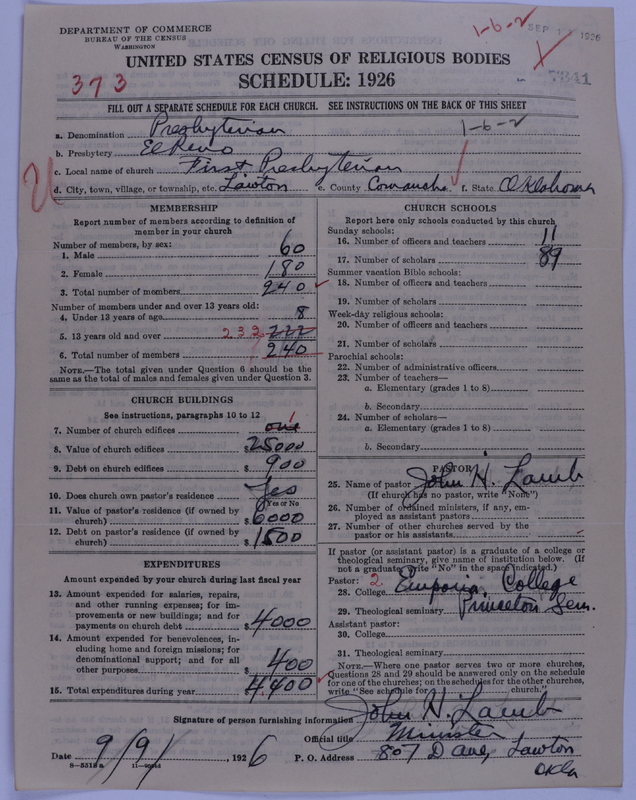 DEPARTMENT OF COMMERCE
BUREAU OF THE CENSUS
WASHINGTON
1-6-2
SEP 1 1926
UNITED STATES CENSUS OF RELIGIOUS BODIES
373
SCHEDULE: 1926
FILL OUT A SEPARATE SCHEDULE FOR EACH CHURCH. SEE INSTRUCTIONS ON THE BACK OF THIS SHEET
a. Denomination Presbyterian 1-6-2
b. Presbytery El Reno
c. Local name of church First Presbyterian
d. City, town, village, or township, etc. Lawton e. County Comanche f. State Oklahoma
MEMBERSHIP
Report number of members according to definition of
member in your church
Number of members, by sex:
1. Male 60
2. Female 180
3. Total number of members 240
Number of members under and over 13 years old:
4. Under 13 years of age 8
5. 13 years old and over 232 222
6. Total number of members 240
NOTE.—The total given under Question 6 should be
same as the total of males and females given under Question 3.
CHURCH BUILDINGS
See instructions, paragraphs 10 to 12
7. Number of church edifices one 1
8. Value of church edifices $25000
9. Debt on church edifices $900
10. Does church own pastor's residence Yes
Yes or No
11. Value of pastor's residence (if owned by
church) $6000
12. Debt on pastor's residence (if owned by
church) $1500
EXPENDITURES
Amount expended by your church during last fiscal year
13. Amount expended for salaries, repairs,
and other running expenses; for im-
provements or new buildings; and for
payments on church debt $4000
14. Amount expended for benevolences, in-
cluding home and foreign missions; for
denominational support; and for all
other purposes $400
15. Total expenditures during year $4,400
CHURCH SCHOOLS
Report here only schools conducted by this church
Sunday schools:
16. Number of officers and teachers 11
17. Number of scholars 89
Summer vacation Bible schools:
18. Number of officers and teachers
19. Number of scholars
Week-day religious schools:
20. Number of officers and teachers
21. Number of scholars
Parochial schools:
22. Number of administrative officers
23. Number of teachers—
a. Elementary (grades 1 to 8)
b. Secondary
24. Number of scholars—
a. Elementary (grades 1 to 8)
b. Secondary
PASTOR
25. Name of pastor John H. Lamb
(If church has no pastor, write "None")
26. Number of ordained ministers, if any, em-
ployed as assistant pastors
27. Number of other churches served by the
pastor or his assistants
If pastor (or assistant pastor) is a graduate of a college or
theological seminary, give name of institution below. (If
not a graduate, write "No" in the space indicated.)
Pastor: 2
28. College Emporia College
29. Theological seminary Princeton Sem.
Assistant pastor:
30. College
31. Theological seminary
NOTE.—Where one pastor serves two or more churches,
Questions 28 and 29 should be answered only on the schedule
for one of the churches; on the schedules for the other churches,
write "See schedule for church."
Signature of person furnishing information John H. Lamb
Official title Minister
Date 9/9/, 1926 P. O. Address 807 D Ave, Lawton
Okla
8-5518 a